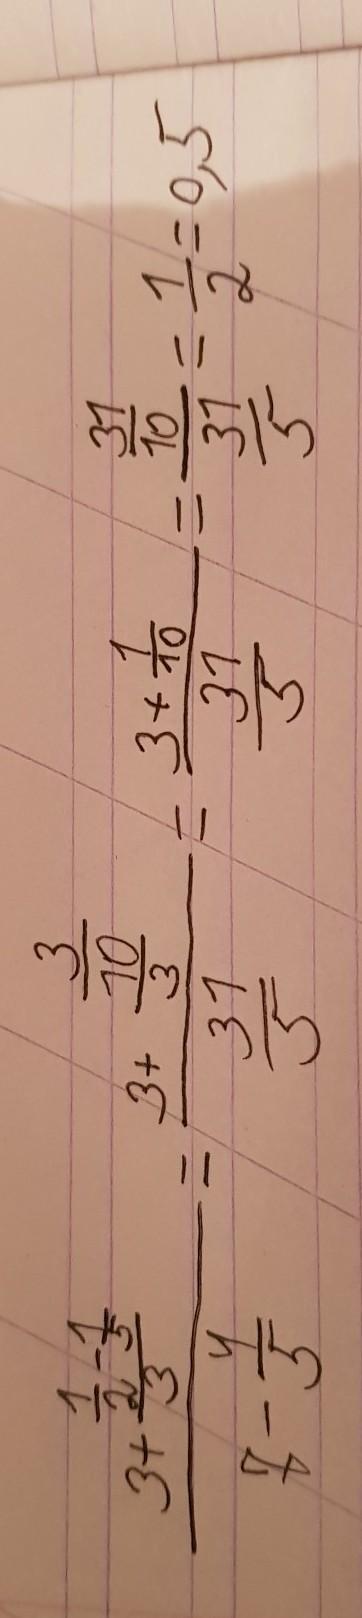 \frac{3+\frac{\frac{1}{2}-\frac{1}{5}}{3}}{7-\frac{4}{5}} = \frac{3+\frac{3}{\frac{10}{3}}}{\frac{31}{5}} = \frac{3+\frac{1}{10}}{\frac{31}{5}} = \frac{\frac{31}{10}}{\frac{31}{5}} = \frac{1}{2} = 0,5